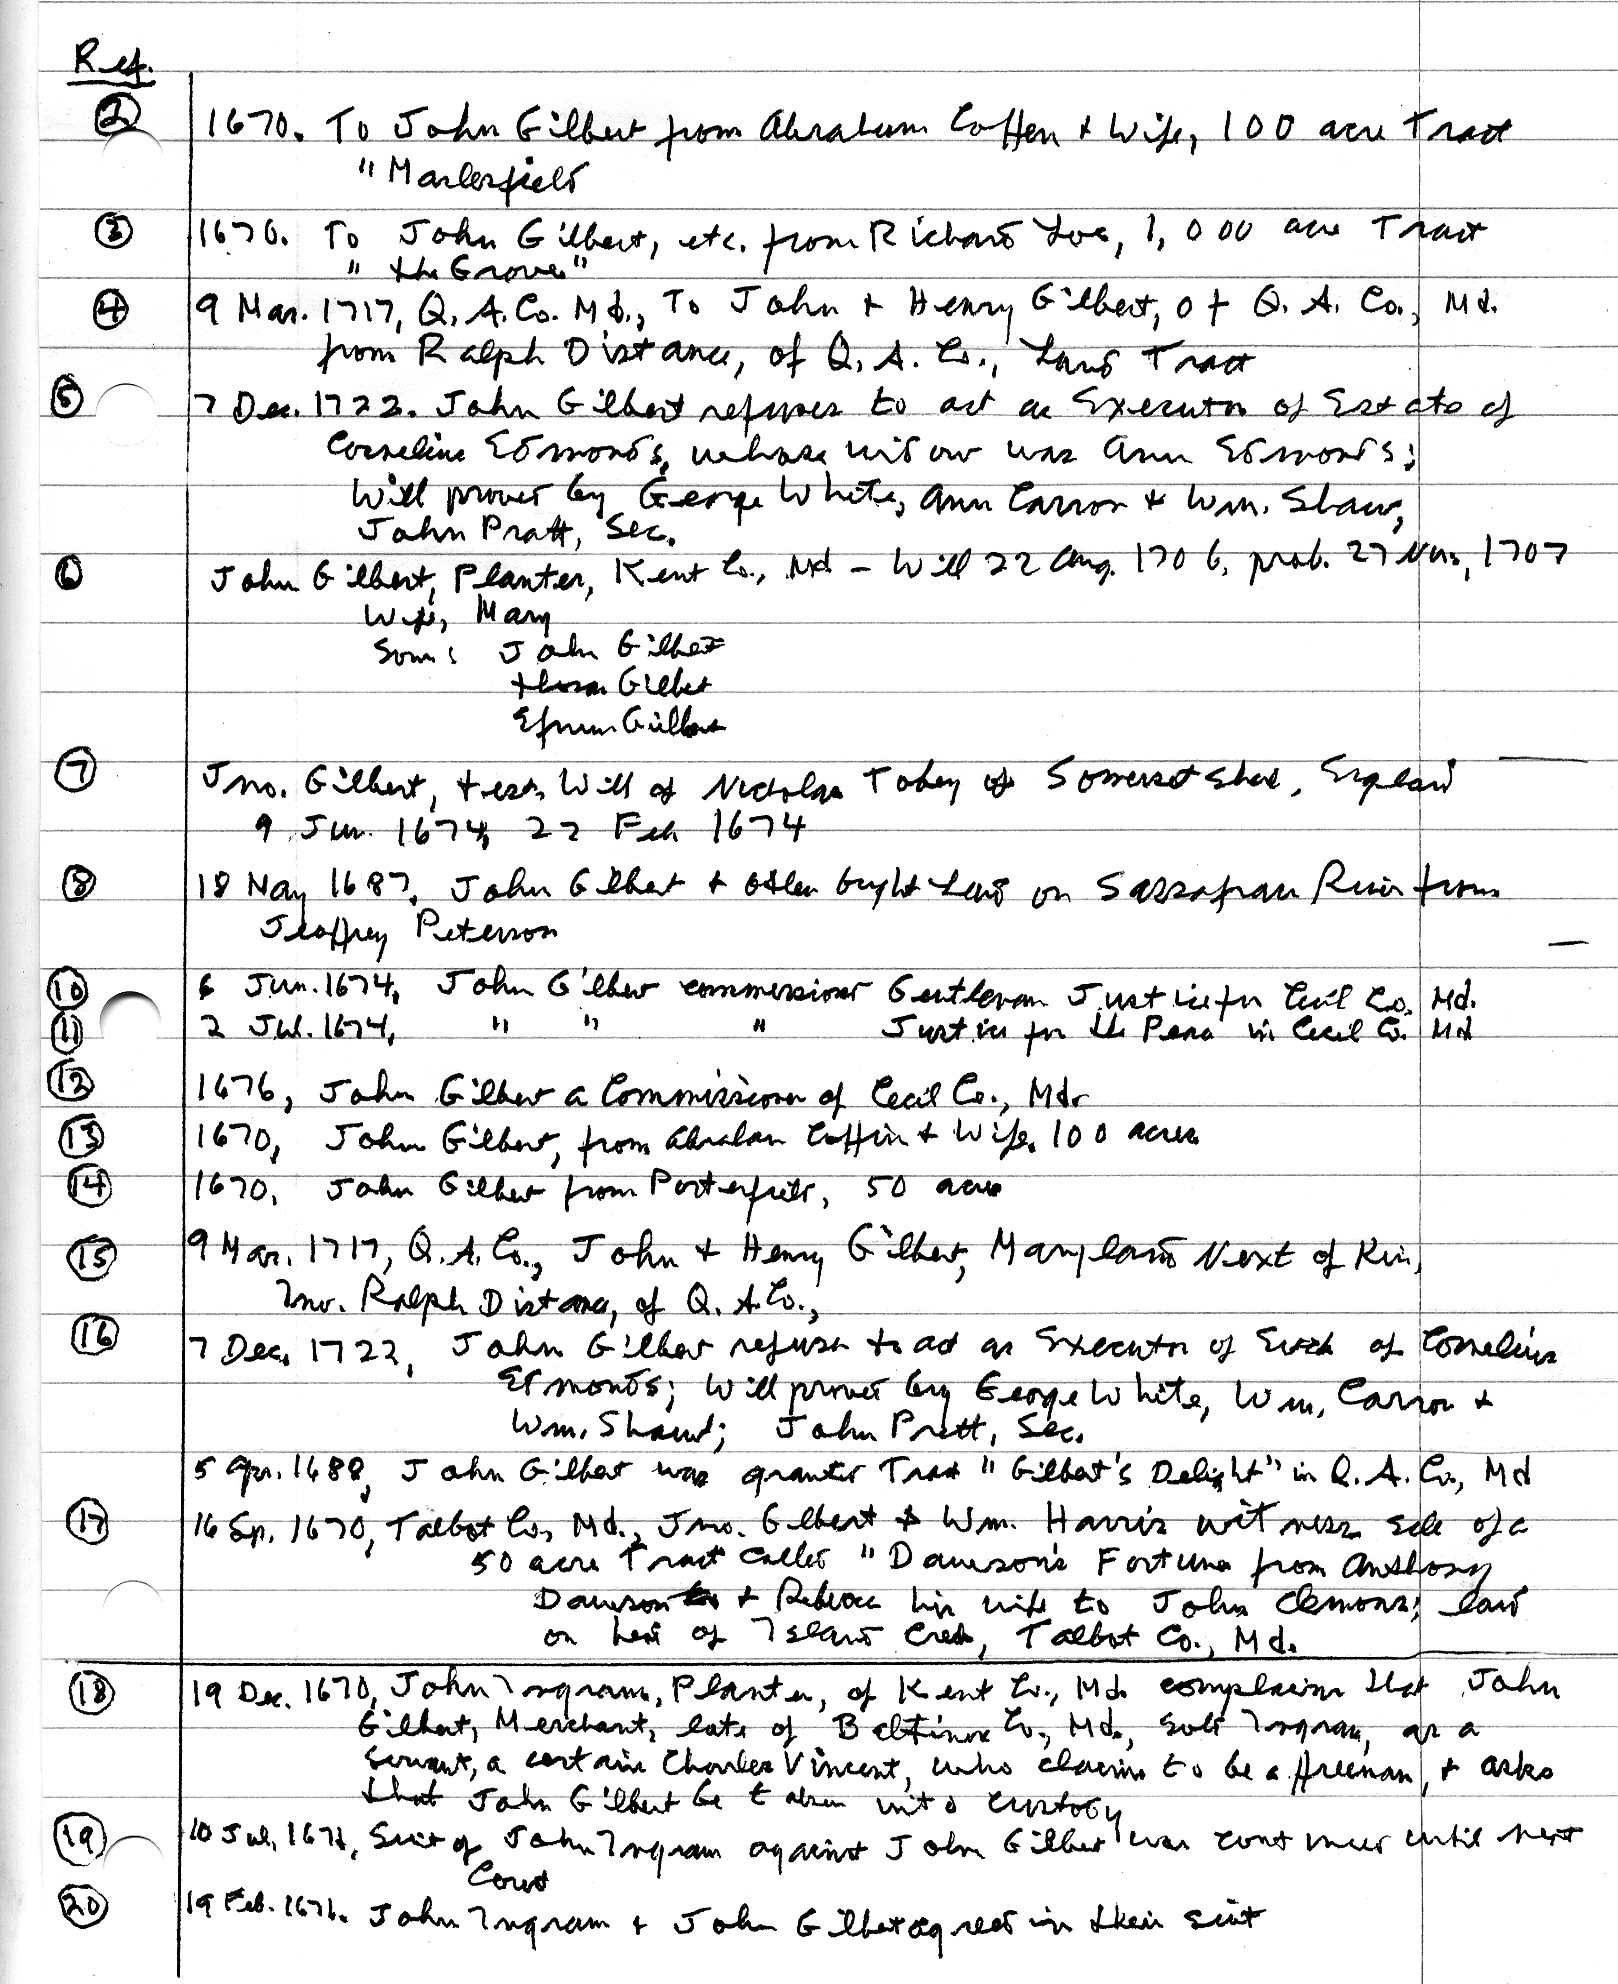 Ref.
② 1670. To John Gilbert from Abraham Coffen + Wife, 100 acre Tract
"Marlerfield
③ 1670. To John Gilbert, etc. from Richard Loe, 1,000 acre Tract
"the Grove"
④ 9 Mar. 1717, Q. A. Co. Md., To John + Henry Gilbert, of Q. A. Co., Md.
from Ralph Distance, of Q. A. Co., Land Tract
⑤ 7 Dec. 1722. John Gilbert refuses to act as Executor of Estate of
Cornelius Edmonds, whose widow was Ann Edmonds;
Will proved by George White, Ann Carron + Wm. Shaw,
John Pratt, Sec.
⑥ John Gilbert, Planter, Kent Co., Md - Will 22 Aug. 1706, prob. 27 Nov, 1707
Wife, Mary
Sons: John Gilbert
Thomas Gilbert
Gilbert
⑦ Jno. Gilbert, test. Will of Nicholas Tobey of Somerset Shire, England
9 Jun. 1674, 22 Feb 1674
⑧ 18 May 1687. John Gilbert + other bught Land on Sassafras River from
Jeaffrey Peterson
⑩ 6 Jun. 1674, John Gilbert commissioned Gentleman Justice for Cecil Co. Md.
⑪ 2 Jul. 1674, " " " Justice for the Peace in Cecil Co. Md
⑫ 1676, John Gilbert a Commissioner of Cecil Co., Md.
⑬ 1670, John Gilbert, from Abraham Coffin + Wife, 100 acres
⑭ 1670, John Gilbert from Porterfield, 50 acres
⑮ 9 Mar. 1717, Q. A. Co., John + Henry Gilbert, Maryland Next of Kin,
Inv. Ralph Distance, of Q. A. Co.,
⑯ 7 Dec. 1722, John Gilbert refuse to act as Executor of Estate of Cornelius
Edmonds; Will proved by George White, Wm. Carron +
Wm. Shawd; John Pratt, Sec.
5 Apr. 1688, John Gilbert was granted Tract "Gilbert's Delight" in Q. A. Co, Md
⑰ 16 Sp. 1670, Talbot Co, Md., Jno. Gilbert + Wm. Harris witness sale of a
50 acre Tract called "Dawson's Fortune from Anthony
Dawson + Rebecca his wife to John Clemons; land
on head of Island Creek, Talbot Co., Md.
⑱ 19 Dec. 1670, John Ingram, Planter, of Kent Co., Md. complains that John
Gilbert, Merchant, late of Baltimore Co, Md., sold Ingram, as a
servant, a certain Charles Vincent, who claims to be a freeman, + asks
that John Gilbert be taken into custody
⑲ 10 Jul. 1671, Suit of John Ingram against John Gilbert was continued until next
Court
⑳ 19 Feb. 1671. John Ingram + John Gilbert agreed in their suit